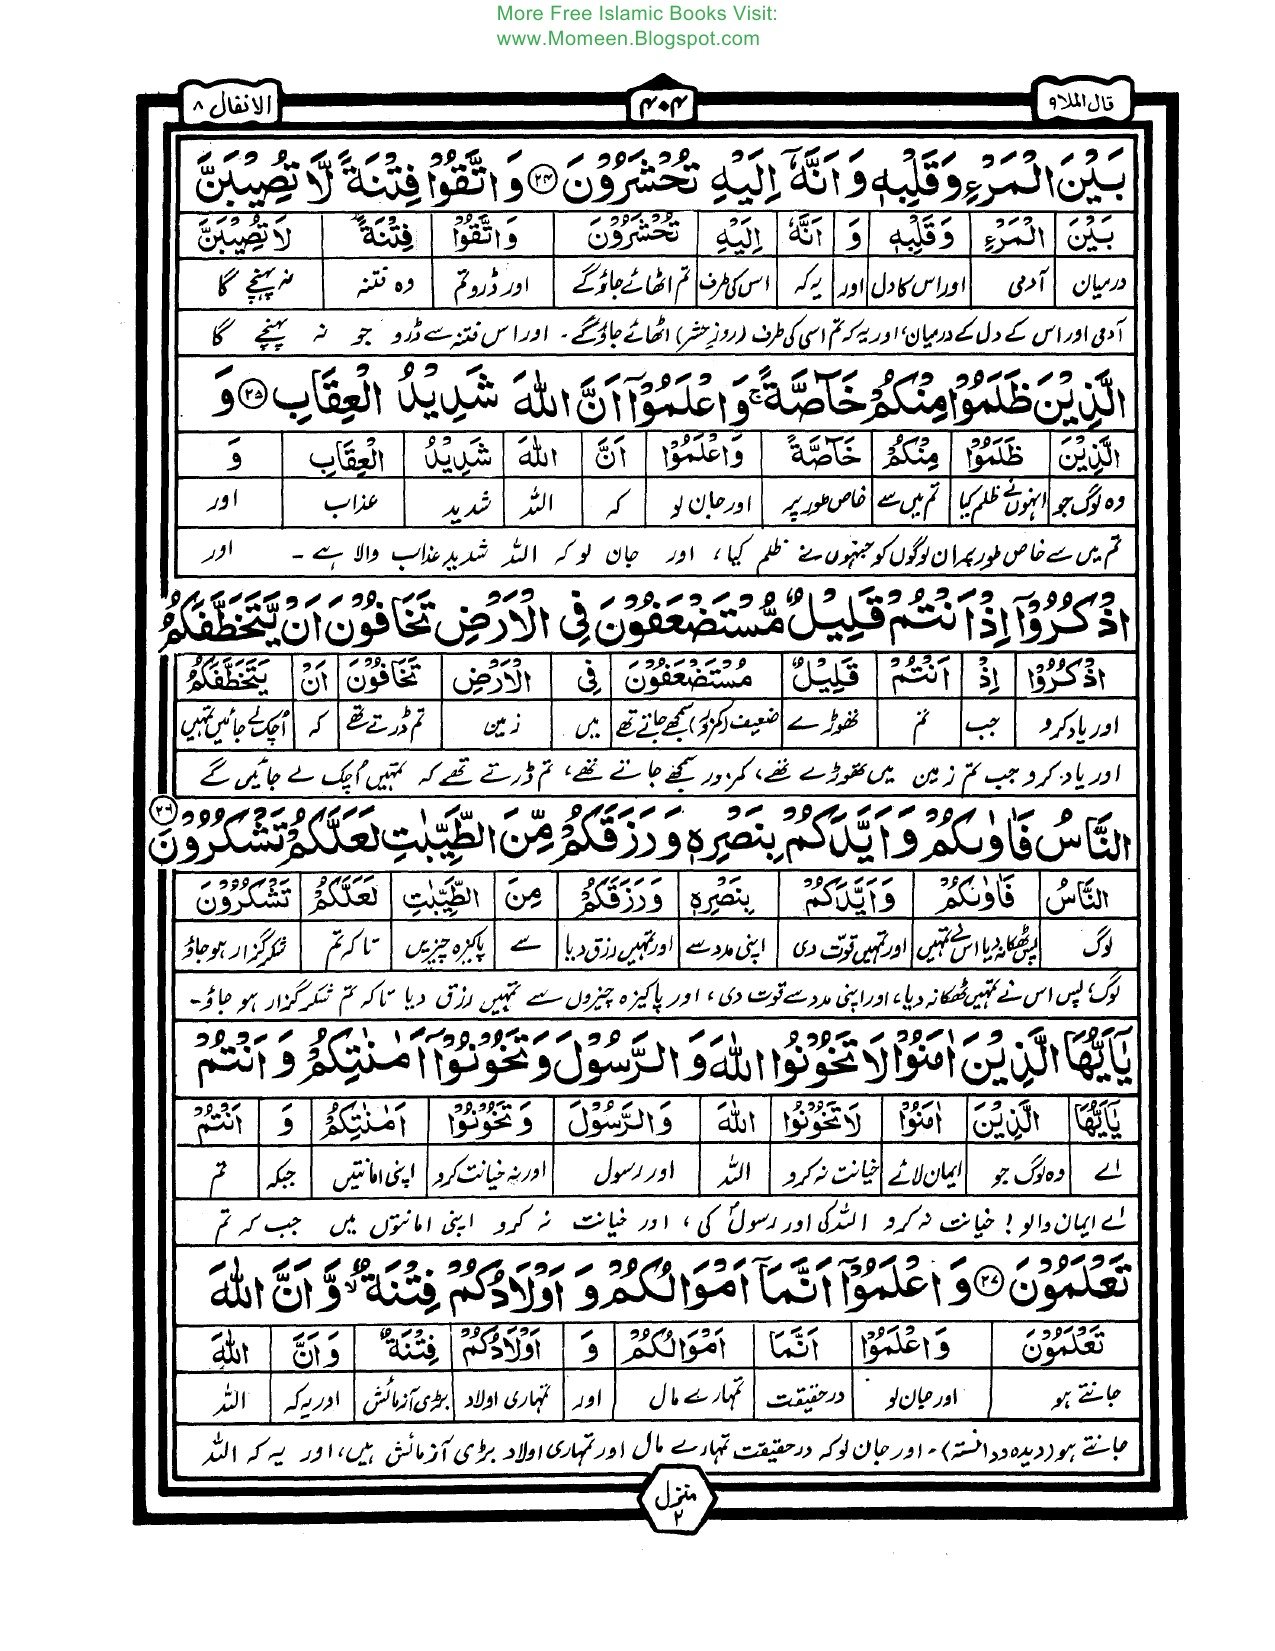 More Free Islamic Books Visit:
www.Momeen.Blogspot.com
قال الملا ۹
۴۰۴
الانفال ۸
بَيْنَ الْمَرْءِ وَقَلْبِهٖ وَ اَنَّهٗۤ اِلَيْهِ تُحْشَرُوْنَ ۲۴ وَ اتَّقُوْا فِتْنَةً لَّا تُصِيْبَنَّ
بَيْنَ الْمَرْءِ وَقَلْبِهٖ وَ اَنَّهٗ اِلَيْهِ تُحْشَرُوْنَ وَ اتَّقُوْا فِتْنَةً لَا تُصِيْبَنَّ
درمیان آدمی اور اس کا دل اور یہ کہ اس کی طرف تم اٹھائے جاؤ گے اور ڈرو تم وہ فتنہ نہ پہنچے گا
آدمی اور اس کے دل کے درمیان، اور یہ کہ تم اسی کی طرف (روز حشر) اٹھائے جاؤ گے۔ اور اس فتنہ سے ڈرو جو نہ پہنچے گا
الَّذِيْنَ ظَلَمُوْا مِنْكُمْ خَآصَّةً ۚ وَ اعْلَمُوْۤا اَنَّ اللّٰهَ شَدِيْدُ الْعِقَابِ ۲۵ وَ
الَّذِيْنَ ظَلَمُوْا مِنْكُمْ خَآصَّةً وَ اعْلَمُوْا اَنَّ اللّٰهَ شَدِيْدُ الْعِقَابِ وَ
وہ لوگ جو انہوں نے ظلم کیا تم میں سے خاص طور پر اور جان لو کہ اللہ شدید عذاب اور
تم میں سے خاص طور پر ان لوگوں کو جنہوں نے ظلم کیا، اور جان لو کہ اللہ شدید عذاب والا ہے ۔ اور
اذْكُرُوْۤا اِذْ اَنْتُمْ قَلِيْلٌ مُّسْتَضْعَفُوْنَ فِي الْاَرْضِ تَخَافُوْنَ اَنْ يَّتَخَطَّفَكُمُ
اذْكُرُوْا اِذْ اَنْتُمْ قَلِيْلٌ مُسْتَضْعَفُوْنَ فِي الْاَرْضِ تَخَافُوْنَ اَنْ يَتَخَطَّفَكُمُ
اور یاد کرو جب تم تھوڑے ضعیف (کمزور) سمجھے جاتے تھے میں زمین تم ڈرتے تھے کہ اُچک لے جائیں تمہیں
اور یاد کرو جب تم زمین میں تھوڑے تھے، کمزور سمجھے جاتے تھے، تم ڈرتے تھے کہ تمہیں اُچک لے جائیں گے
النَّاسُ فَاٰوٰىكُمْ وَ اَيَّدَكُمْ بِنَصْرِهٖ وَ رَزَقَكُمْ مِّنَ الطَّيِّبٰتِ لَعَلَّكُمْ تَشْكُرُوْنَ ۲۶
النَّاسُ فَاٰوٰىكُمْ وَ اَيَّدَكُمْ بِنَصْرِهٖ وَ رَزَقَكُمْ مِنَ الطَّيِّبٰتِ لَعَلَّكُمْ تَشْكُرُوْنَ
لوگ پس ٹھکانہ دیا اس نے تمہیں اور تمہیں قوت دی اپنی مدد سے اور تمہیں رزق دیا سے پاکیزہ چیزیں تاکہ تم شکر گزار ہو جاؤ
لوگ، پس اس نے تمہیں ٹھکانہ دیا، اور اپنی مدد سے قوت دی، اور پاکیزہ چیزوں سے تمہیں رزق دیا تاکہ تم شکر گزار ہو جاؤ۔
يٰۤاَيُّهَا الَّذِيْنَ اٰمَنُوْا لَا تَخُوْنُوا اللّٰهَ وَ الرَّسُوْلَ وَ تَخُوْنُوْۤا اَمٰنٰتِكُمْ وَ اَنْتُمْ
يٰۤاَيُّهَا الَّذِيْنَ اٰمَنُوْا لَا تَخُوْنُوا اللّٰهَ وَ الرَّسُوْلَ وَ تَخُوْنُوْا اَمٰنٰتِكُمْ وَ اَنْتُمْ
اے وہ لوگ جو ایمان لائے خیانت نہ کرو اللہ اور رسول اور نہ خیانت کرو اپنی امانتیں جبکہ تم
اے ایمان والو! خیانت نہ کرو اللہ کی اور رسول کی، اور خیانت نہ کرو اپنی امانتوں میں جب کہ تم
تَعْلَمُوْنَ ۲۷ وَ اعْلَمُوْۤا اَنَّمَاۤ اَمْوَالُكُمْ وَ اَوْلَادُكُمْ فِتْنَةٌ ۙ وَّ اَنَّ اللّٰهَ
تَعْلَمُوْنَ وَ اعْلَمُوْا اَنَّمَا اَمْوَالُكُمْ وَ اَوْلَادُكُمْ فِتْنَةٌ وَ اَنَّ اللّٰهَ
جانتے ہو اور جان لو درحقیقت تمہارے مال اور تمہاری اولاد بڑی آزمائش اور یہ کہ اللہ
جانتے ہو (دیدہ و دانستہ)۔ اور جان لو کہ درحقیقت تمہارے مال اور تمہاری اولاد بڑی آزمائش ہیں، اور یہ کہ اللہ
منزل ۲